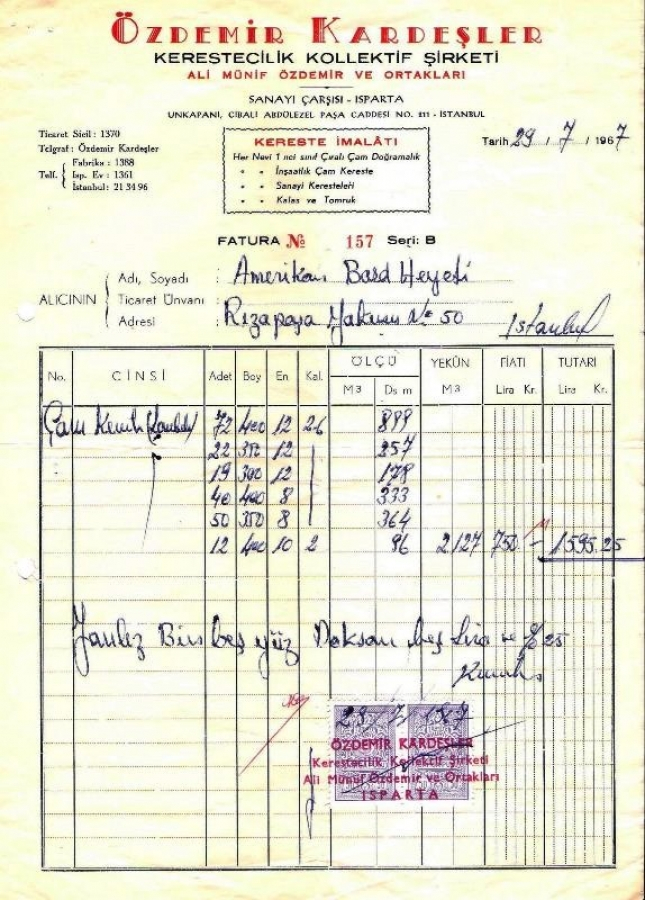 ÖZDEMİR KARDEŞLER
KERESTECİLİK KOLLEKTİF ŞİRKETİ
ALİ MÜNİF ÖZDEMİR VE ORTAKLARI
SANAYİ ÇARŞISI - ISPARTA
UNKAPANI, CİBALİ ABDÜLEZEL PAŞA CADDESİ NO. 211 - İSTANBUL
Ticaret Sicil : 1370
Telgraf : Özdemir Kardeşler
Telf. Fabrika : 1388
Isp. Ev : 1361
İstanbul : 21 34 96
KERESTE İMALÂTI
Her Nevi 1 nci sınıf Çıralı Çam Doğramalık
" " İnşaatlık Çam Kereste
" " Sanayi Keresteleri
" " Kalas ve Tomruk
Tarih 29 / 7 / 1967
FATURA № 157 Seri: B
ALICININ
Adı, Soyadı : Amerikan Bord Heyeti
Ticaret Ünvanı :
Adresi : Rızapaşa Yokuşu No 50 İstanbul
No. CİNSİ Adet Boy En Kal. ÖLÇÜ M3 Ds m YEKÛN M3 FİATI Lira Kr. TUTARI Lira Kr.
Çam 72 400 12 2.6 899
22 350 12 257
19 300 12 178
40 400 8 333
50 350 8 364
12 400 10 2 96 2.127 750 - 1595.25
Yanlız Bin beş yüz Doksan beş Lira ve % 25
Kuruştur
29/7/1967
ÖZDEMİR KARDEŞLER
Kerestecilik Kollektif Şirketi
Ali Münif Özdemir ve Ortakları
ISPARTA